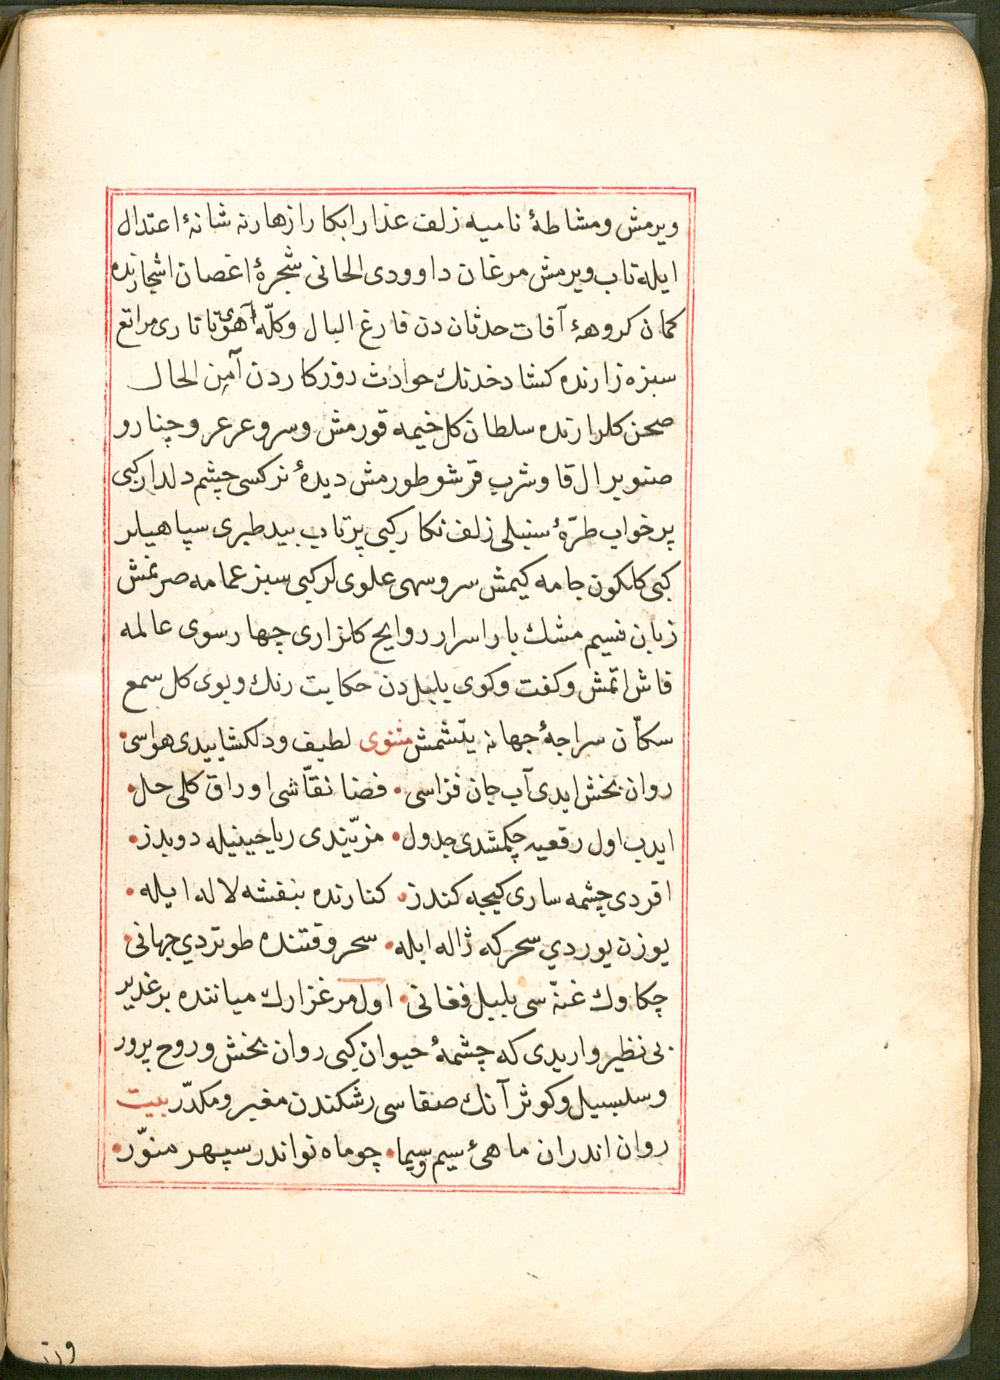 ویرمش ومشاطهٔ نامیه زلف عذار ابکار ازهارنه شانهٔ اعتدال
ایله تاب ویرمش مرغان داوودی الحانی شجرهٔ اغصان اشجارنده
کمان کروههٔ آفات حدثان دن فارغ البال وکلّه آهوی تاتاری مراتع
سبزه زارنده کشاد خدنك حوادث روزکاردن آمن الحال
صحن کلزارنده سلطان کل خیمه قورمش وسرو عرعر وچنار و
صنوبر ال قاوشرب قرشو طورمش دیدهٔ نرکسی چشم دلدار کبی
پر خواب طرّهٔ سنبلی زلف نکار کبی پرتاب بید طبری سپاهیلر
کبی کلکون جامه کیمش سرو سهی علوی لر کبی سبز عمامه صرنمش
زبان نسیم مشك بار اسرار روایح کلزاری چهار سوی عالمه
فاش اتمش وکفت وکوی بلبل دن حکایت رنك وبوی کل سمع
سکّان سراجهٔ جهانه یتّشمش مثنوی لطیف ودلکشا ییدی هواسی
روان بخش ایدی آب جان فزاسی فضا نقّاشی اوراق کلی حل
ایدب اول رقعیه چکمشدی جدول مزیّندی ریاحینیله دوبدز
اقردی چشمه ساری کیجه کندز کنارنده بنفشه لاله ایله
یوزن یوردي سحرکه ژاله ایله سحر وقتنده طوتردي جهانی
چکاوك غنّه سی بلبل فغانی اول مرغزارك میاننده بر غدیر
بی نظیر واریدی که چشمهٔ حیوان کبی روان بخش وروح پرور
وسلسبیل وکوثر آنك صنقاسی رشکندن مغبر ومکدّر بیت
روان اندران ماهیٔ سیم وسیما چو ماه نو اندر سپهر منوّر